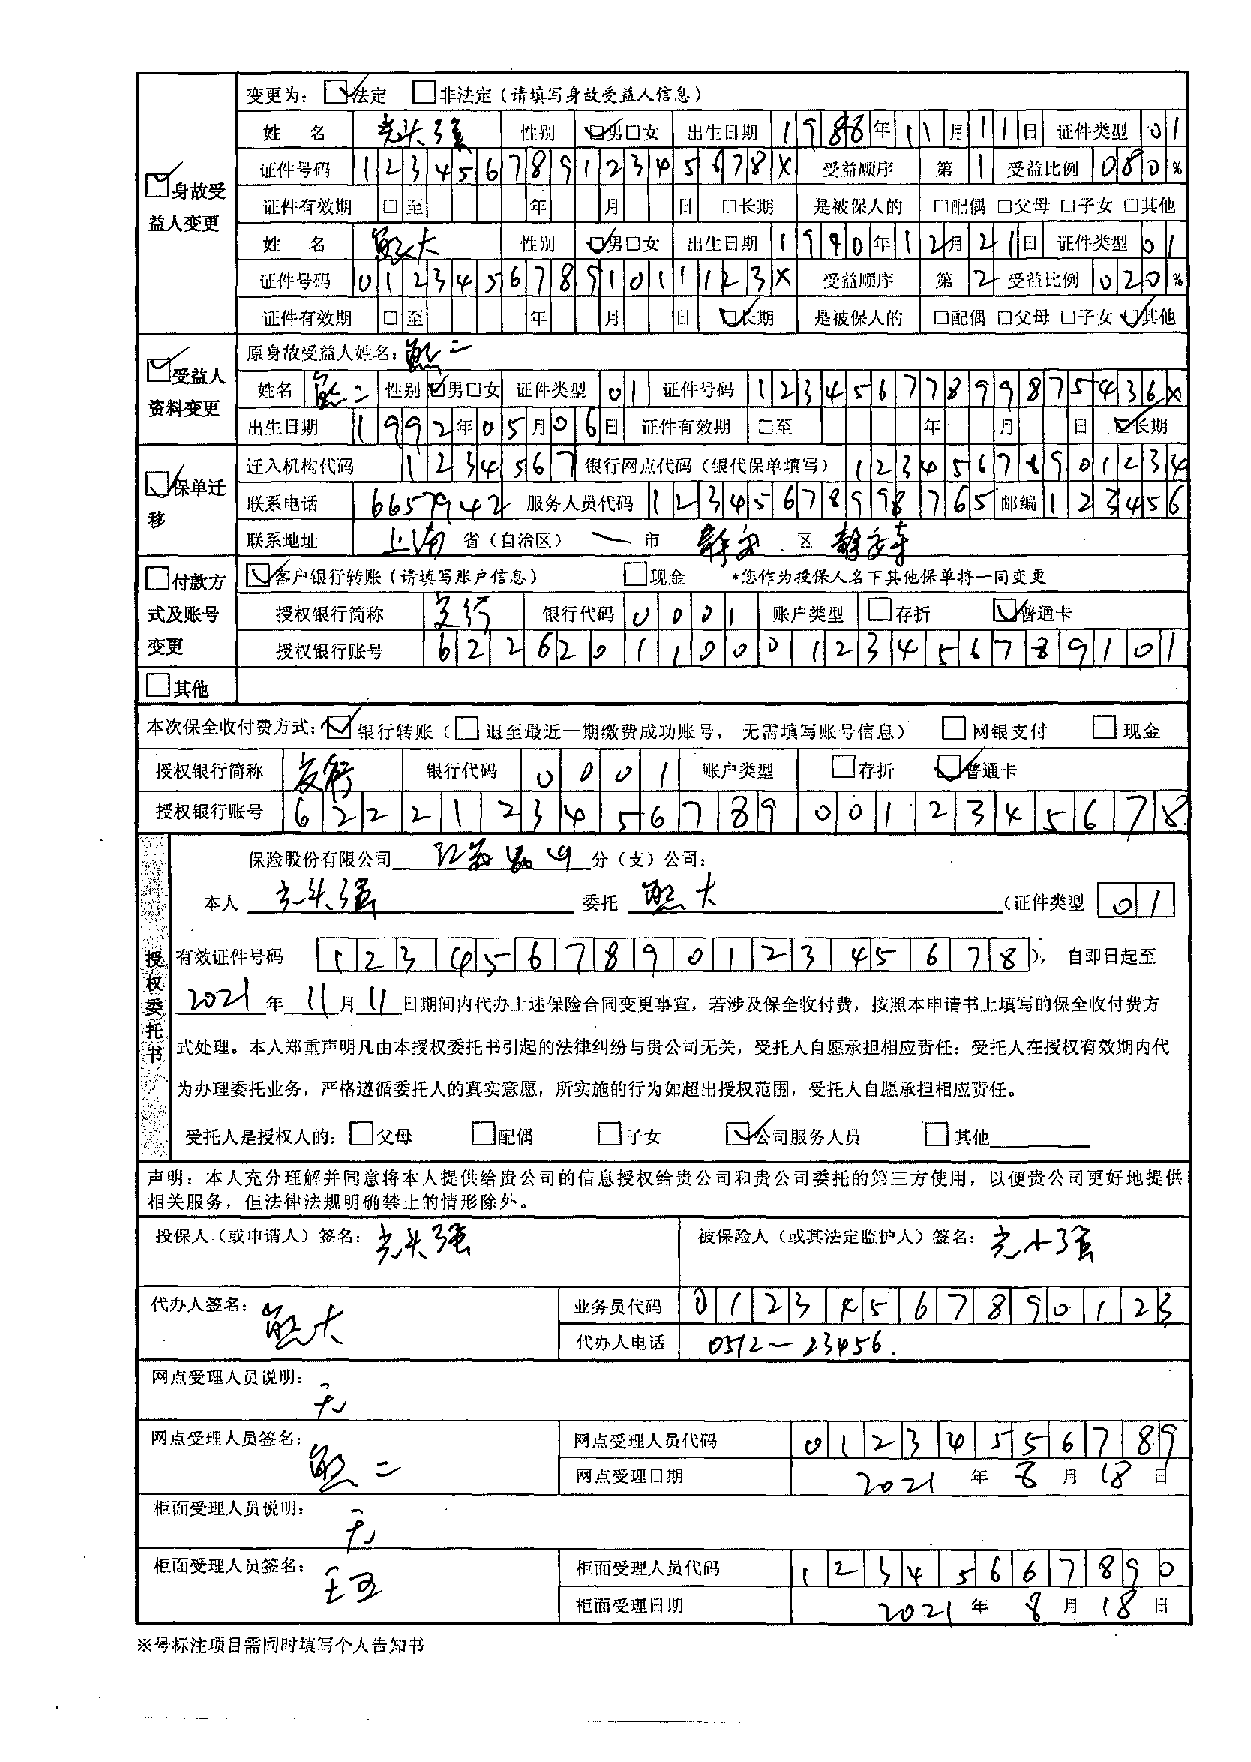 变更为：☑法定 □非法定（请填写身故受益人信息）
☑身故受益人变更
姓 名 光头强 性别 ☑男□女 出生日期 1988年11月11日 证件类型 01
证件号码 12345678912345678X 受益顺序 第1 受益比例 080%
证件有效期 □至 年 月 日 □长期 是被保人的 □配偶 □父母 □子女 □其他
姓 名 熊大 性别 ☑男□女 出生日期 1990年12月21日 证件类型 01
证件号码 01234567891011123X 受益顺序 第2 受益比例 020%
证件有效期 □至 年 月 日 ☑长期 是被保人的 □配偶 □父母 □子女 ☑其他
☑受益人资料变更
原身故受益人姓名：熊二
姓名 熊二 性别☑男□女 证件类型 01 证件号码 12345677899875436X
出生日期 1992年05月06日 证件有效期 □至 年 月 日 ☑长期
☑保单迁移
迁入机构代码 1234567 银行网点代码（银代保单填写）12345678901234
联系电话 66579442 服务人员代码 12345678998765 邮编 123456
联系地址 上海 省（自治区） 一 市 静安 区 静安寺
□付款方式及账号变更
☑客户银行转账（请填写账户信息） □现金 *您作为投保人名下其他保单将一同变更
授权银行简称 交行 银行代码 0001 账户类型 □存折 ☑普通卡
授权银行账号 62262011000123456789101
□其他
本次保全收付费方式：☑银行转账（□退至最近一期缴费成功账号，无需填写账号信息） □网银支付 □现金
授权银行简称 农行 银行代码 0001 账户类型 □存折 ☑普通卡
授权银行账号 62221234567890012345678
授权委托书
保险股份有限公司 江苏苏州 分（支）公司：
本人 光头强 委托 熊大 （证件类型 01
有效证件号码 123456789012345678），自即日起至
2021 年 11 月 11 日期间内代办上述保险合同变更事宜，若涉及保全收付费，按照本申请书上填写的保全收付费方
式处理。本人郑重声明凡由本授权委托书引起的法律纠纷与贵公司无关，受托人自愿承担相应责任；受托人在授权有效期内代
为办理委托业务，严格遵循委托人的真实意愿，所实施的行为如超出授权范围，受托人自愿承担相应责任。
受托人是授权人的：□父母 □配偶 □子女 ☑公司服务人员 □其他
声明：本人充分理解并同意将本人提供给贵公司的信息授权给贵公司和贵公司委托的第三方使用，以便贵公司更好地提供
相关服务，但法律法规明确禁止的情形除外。
投保人（或申请人）签名：光头强 被保险人（或其法定监护人）签名：光小强
代办人签名：熊大 业务员代码 01234567890123
代办人电话 0512-23456.
网点受理人员说明：无
网点受理人员签名：熊二 网点受理人员代码 01234556789
网点受理日期 2021 年 8 月 18 日
柜面受理人员说明：无
柜面受理人员签名：王五 柜面受理人员代码 12345667890
柜面受理日期 2021 年 8 月 18 日
※号标注项目需同时填写个人告知书